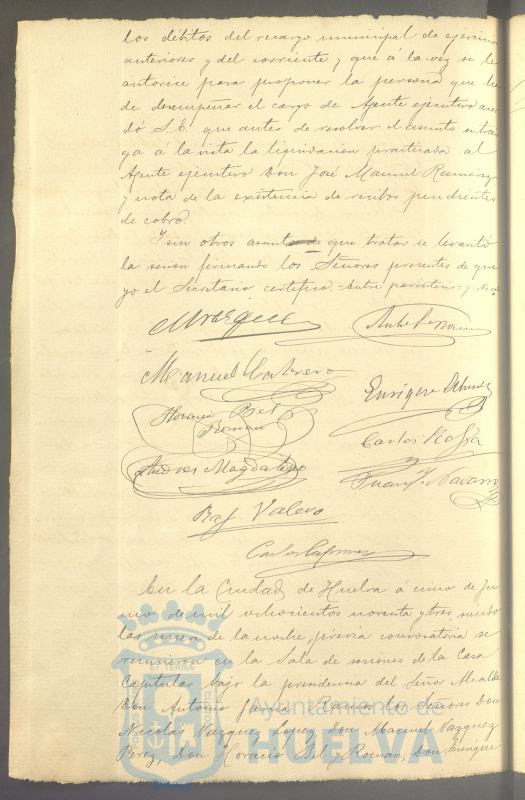 los débitos del recargo municipal de ejercicios
anteriores y del corriente y que á la vez se le
autorice para proponer la persona que ha
de desempeñar el cargo de Agente ejecutivo acor
dó S.E. que antes de resolver el asunto se trai
ga á la vista la liquidacion practicada al
Agente ejecutivo Don José Manuel Ramirez
y nota de la existencia de recibos pendientes
de cobro.
Y sin otros asuntos de que tratar se levantó
la sesion firmando los Señores presentes de que
yo el Secretario certifico. = Entre parentesis = y =
Manuel
Enrique
Horacio Bel
Roman
Carlos
Andres Magdaleno
Juan J. Navarro
Raf Valero
Carlos
En la Ciudad de Huelva á cinco de Ju
nio de mil ochocientos noventa y tres, siendo
las nueve de la noche, previa convocatoria se
reunieron en la Sala de sesiones de la Casa
Capitular bajo la presidencia del Señor Alcalde
Don Antonio Garcia Ramos los Señores Don
Nicolás Vazquez Lopez, Don Manuel Vazquez
Perez, Don Horacio Bel y Roman, Don Enrique
ET TERRÆ
Ayuntamiento de
HUELVA